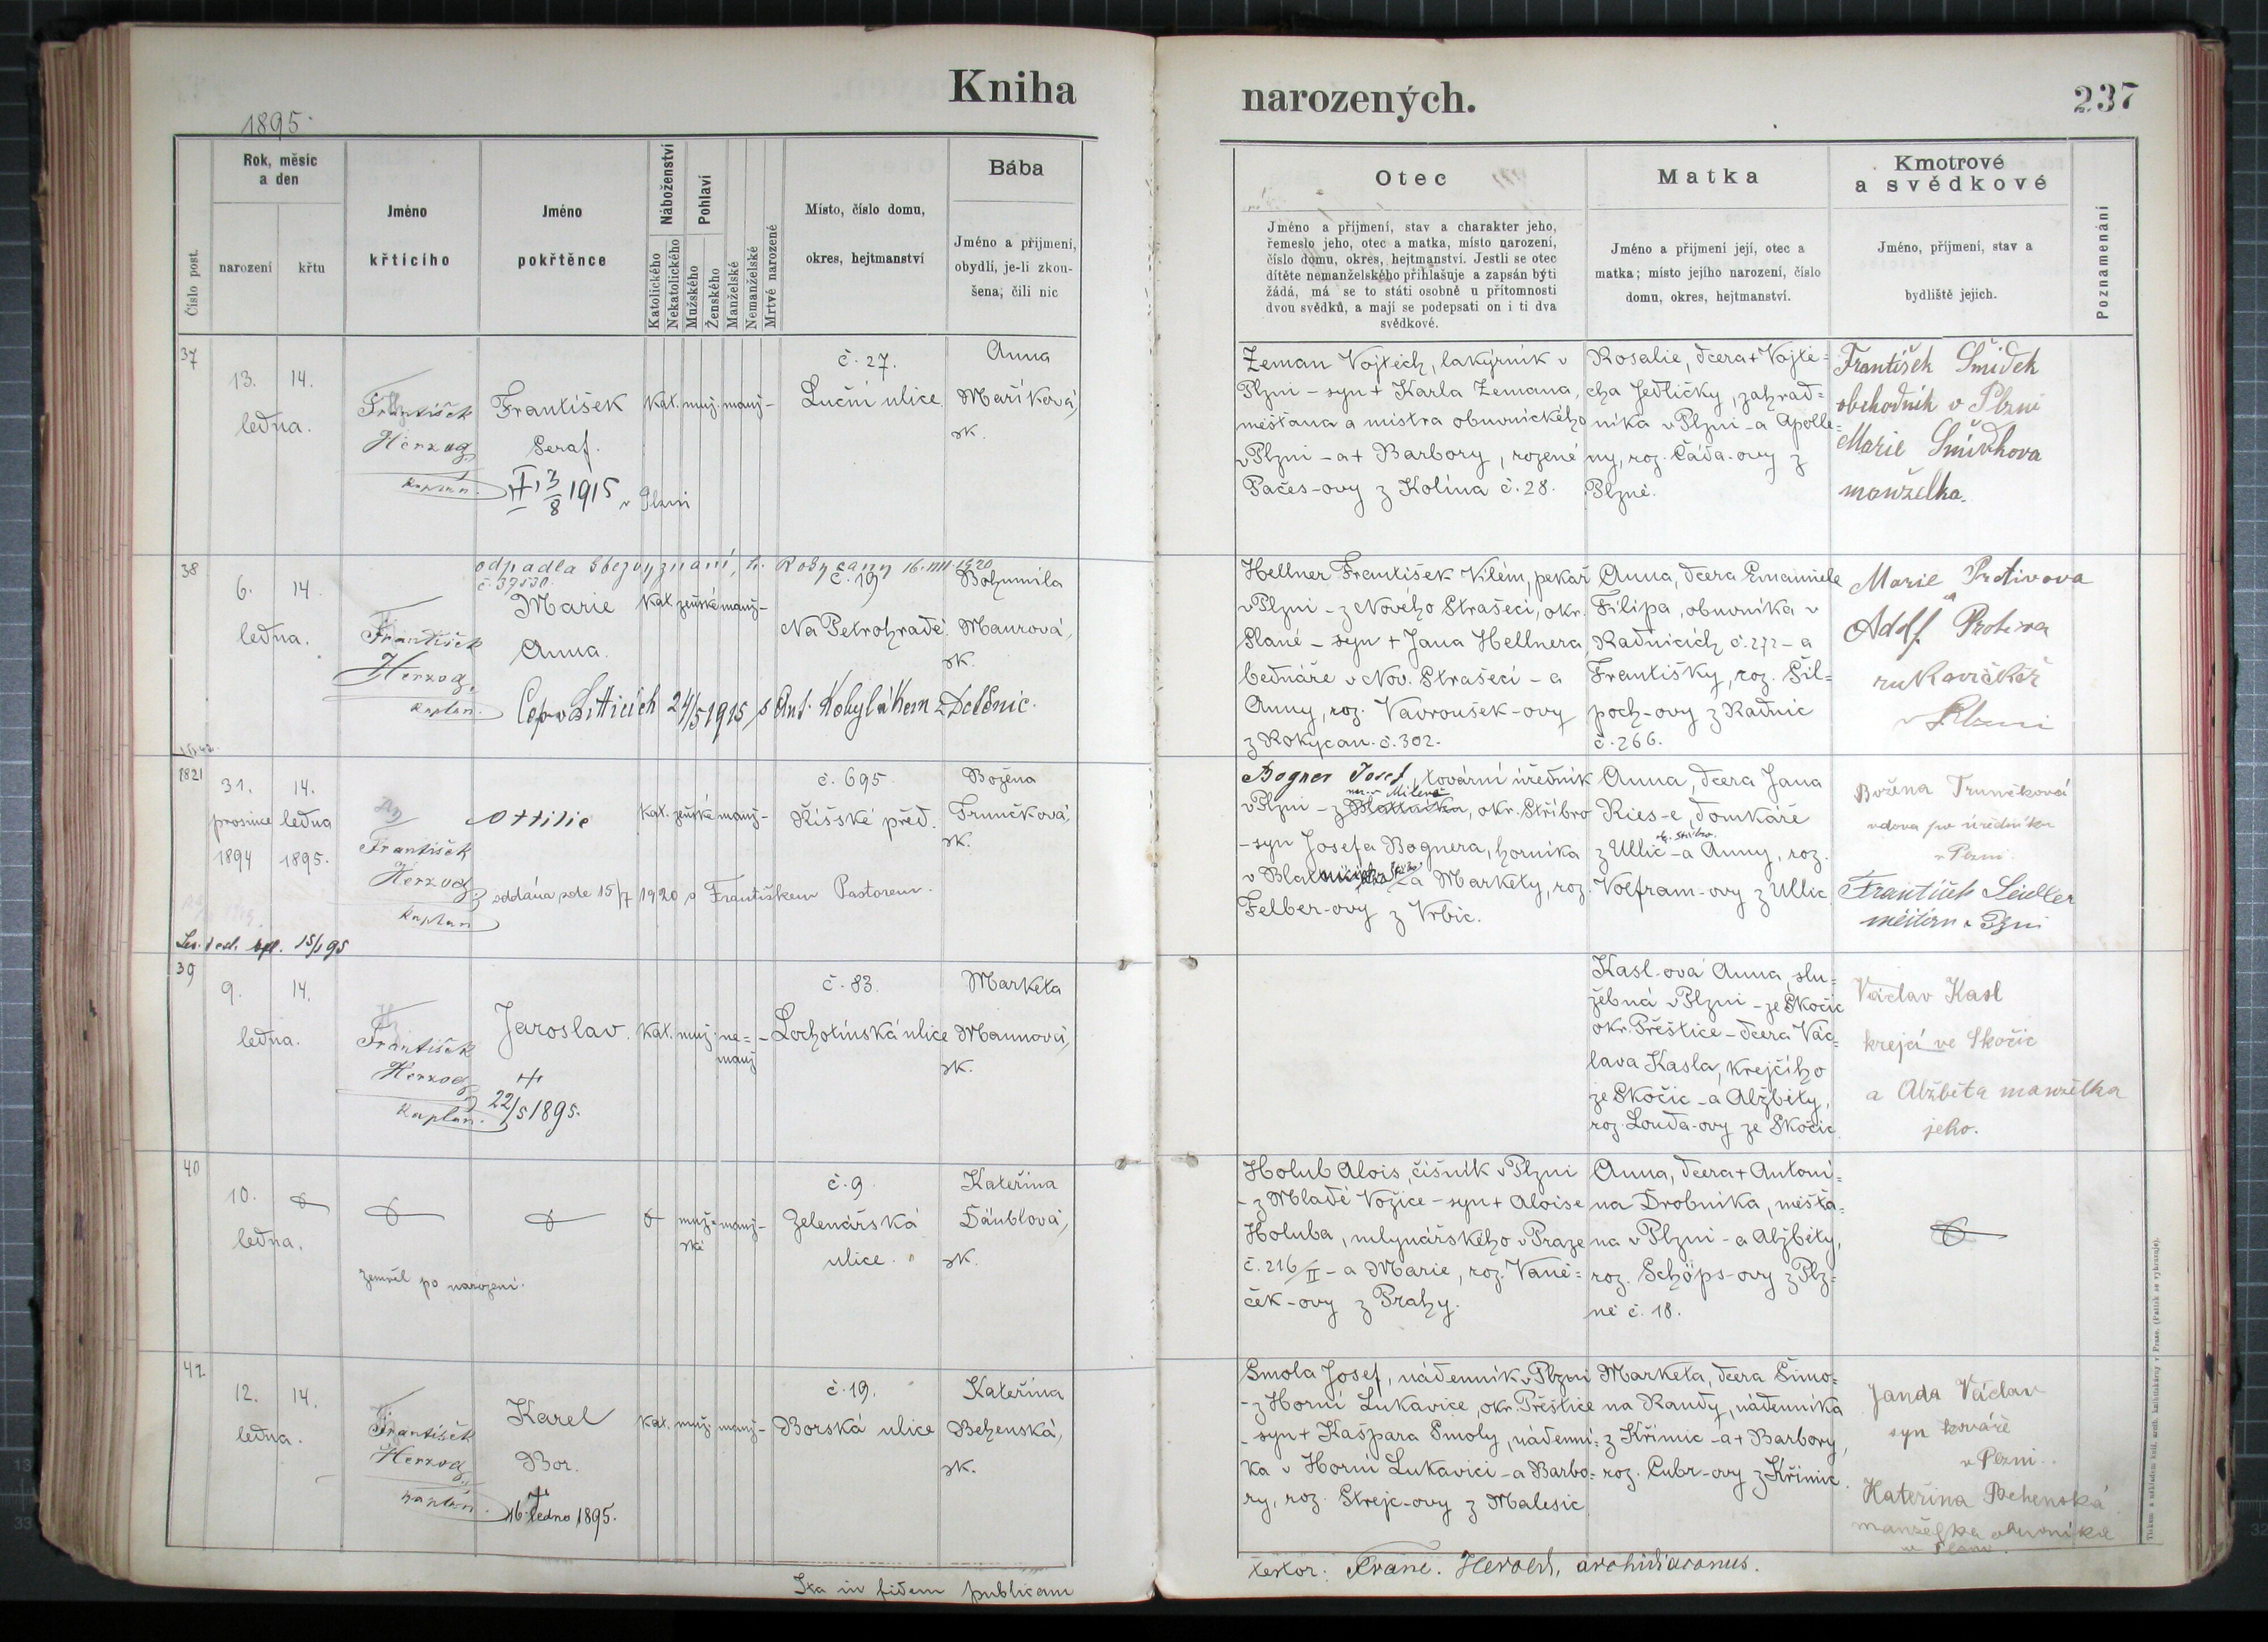 Kniha
1895.
Číslo post.
Rok, měsíc
a den
narození
křtu
Jméno
křtícího
Jméno
pokřtěnce
Náboženství
Katolického
Nekatolického
Pohlaví
Mužského
Ženského
Manželské
Nemanželské
Mrtvé narozené
Místo, číslo domu,
okres, hejtmanství
Bába
Jméno a příjmení,
obydlí, je-li zkou-
šena, čili nic
37
13.
ledna.
14.
František
Herzog,
kaplan.
František
Seraf.
3/8 1915 v Plzni
kat. muž. manž-
č. 27.
Luční ulice
Anna
Maříková,
zk.
38
6.
ledna.
14.
František
Herzog,
kaplan.
odpadla bezvyznání, h. Rokycany 16.VIII.1920
č. 37530.
Marie
Anna.
kat. ženské manž-
č. 19
Na Petrohradě.
Bohumila
Maurová,
zk.
24/5 1915 s Ant. Kobylákem z
1821
31.
prosince
1894
14.
ledna
1895.
František
Herzog,
kaplan
Ottilie
kat. ženské manž-
č. 695.
Říšské před.
Božena
Trunčková,
zk.
oddána zde 15/7 1920 s Františkem Pastorem.
15/1 95
39
9.
ledna.
14.
František
Herzog,
kaplan.
Jaroslav.
+
22/5 1895.
kat. muž. ne=
manž
č. 83.
Lochotínská ulice
Marketa
Maurová,
zk.
40
10.
ledna.
muž=
ské
manž-
č. 9
Zelenářská
ulice.
Kateřina
Däublová,
zk.
Zemřel po narození.
41
12.
ledna.
14.
František
Herzog,
kaplan.
Karel
Bor.
+
16. ledna 1895.
kat. muž. manž-
č. 19.
Borská ulice
Kateřina
Behenská,
zk.
Ita in fidem publicam
narozených.
237
Otec
Jméno a příjmení, stav a charakter jeho,
řemeslo jeho, otec a matka, místo narození,
číslo domu, okres, hejtmanství. Jestli se otec
dítěte nemanželského přihlašuje a zapsán býti
žádá, má se to státi osobně u přítomnosti
dvou svědků, a mají se podepsati on i ti dva
svědkové.
Matka
Jméno a přijmení její, otec a
matka; místo jejího narození, číslo
domu, okres, hejtmanství.
Kmotrové
a svědkové
Jméno, příjmení, stav a
bydliště jejich.
Poznamenání
Zeman Vojtěch, lakýrník v
Plzni – syn + Karla Zemana,
měšťana a mistra obuvnického
v Plzni – a + Barbory, rozené
Pačes-ovy z Kolína č. 28.
Rosalie, dcera + Vojtě=
cha Jedličky, zahrad=
níka v Plzni – a Apolle=
ny, roz. Čáda-ovy z
Plzně.
František Smídek
obchodník v Plzni
Marie Smídkova
manželka.
Hellner František Vilém, pekař
v Plzni – z Nového Strašecí, okr.
Slané – syn + Jana Hellnera,
bednáře v Nov. Strašecí – a
Anny, roz. Vavroušek-ovy
z Rokycan. č. 302.
Anna, dcera Emanuele
Filipa, obuvníka v
Radnicích, č. 272 – a
Františky, roz. Šil=
poch-ovy z Radnic
č. 266.
Marie Protivova
a
Adolf Protiva
rukavičkář
v Plzni
Bogner Josef, tovární úředník
v Plzni – z okr. Stříbro
– syn Josefa Bognera, horníka
a Markety, roz.
Felber-ovy z Vrbic.
Anna, dcera Jana
Ries-e, domkáře
ok. Stříbro.
z Ullic – a Anny, roz.
Volfram-ovy z Ullic
Božena Trunečková
vdova po úředníku
v Plzni.
František Seidler
Kasl-ová Anna, slu=
žebná v Plzni – ze Skočic
okr. Přeštice – dcera Vác=
lava Kasla, krejčího
ze Skočic – a Alžběty,
roz. Louda-ovy ze Skočic.
Václav Kasl
krejčí ve Skočic
a Alžběta manželka
jeho.
Holub Alois, číšník v Plzni
– z Mladé Vožice – syn + Aloise
Holuba, mlynářského v Praze
č. 216/II – a Marie, roz. Vaně=
ček-ovy z Prahy.
Anna, dcera + Antoní=
na Drobníka, měšťa=
na v Plzni – a Alžběty,
roz. Schöps-ovy z Plz=
ně č. 18.
Smola Josef, nádenník v Plzni
– z Horní Lukavice, okr. Přeštice
– syn + Kašpara Smoly, nádenní=
ka v Horní Lukavici – a Barbo=
ry, roz. Strejc-ovy z Malesic
Marketa, dcera Šimo=
na Randy, nádenníka
z Křimic – a + Barbory,
roz. Cubr-ovy z Křimic.
Janda Václav
syn kováře
v Plzni.
Kateřina Behenská
manželka obuvníka
v Plzni.
testor: Franc. Herold, archidiaconus.